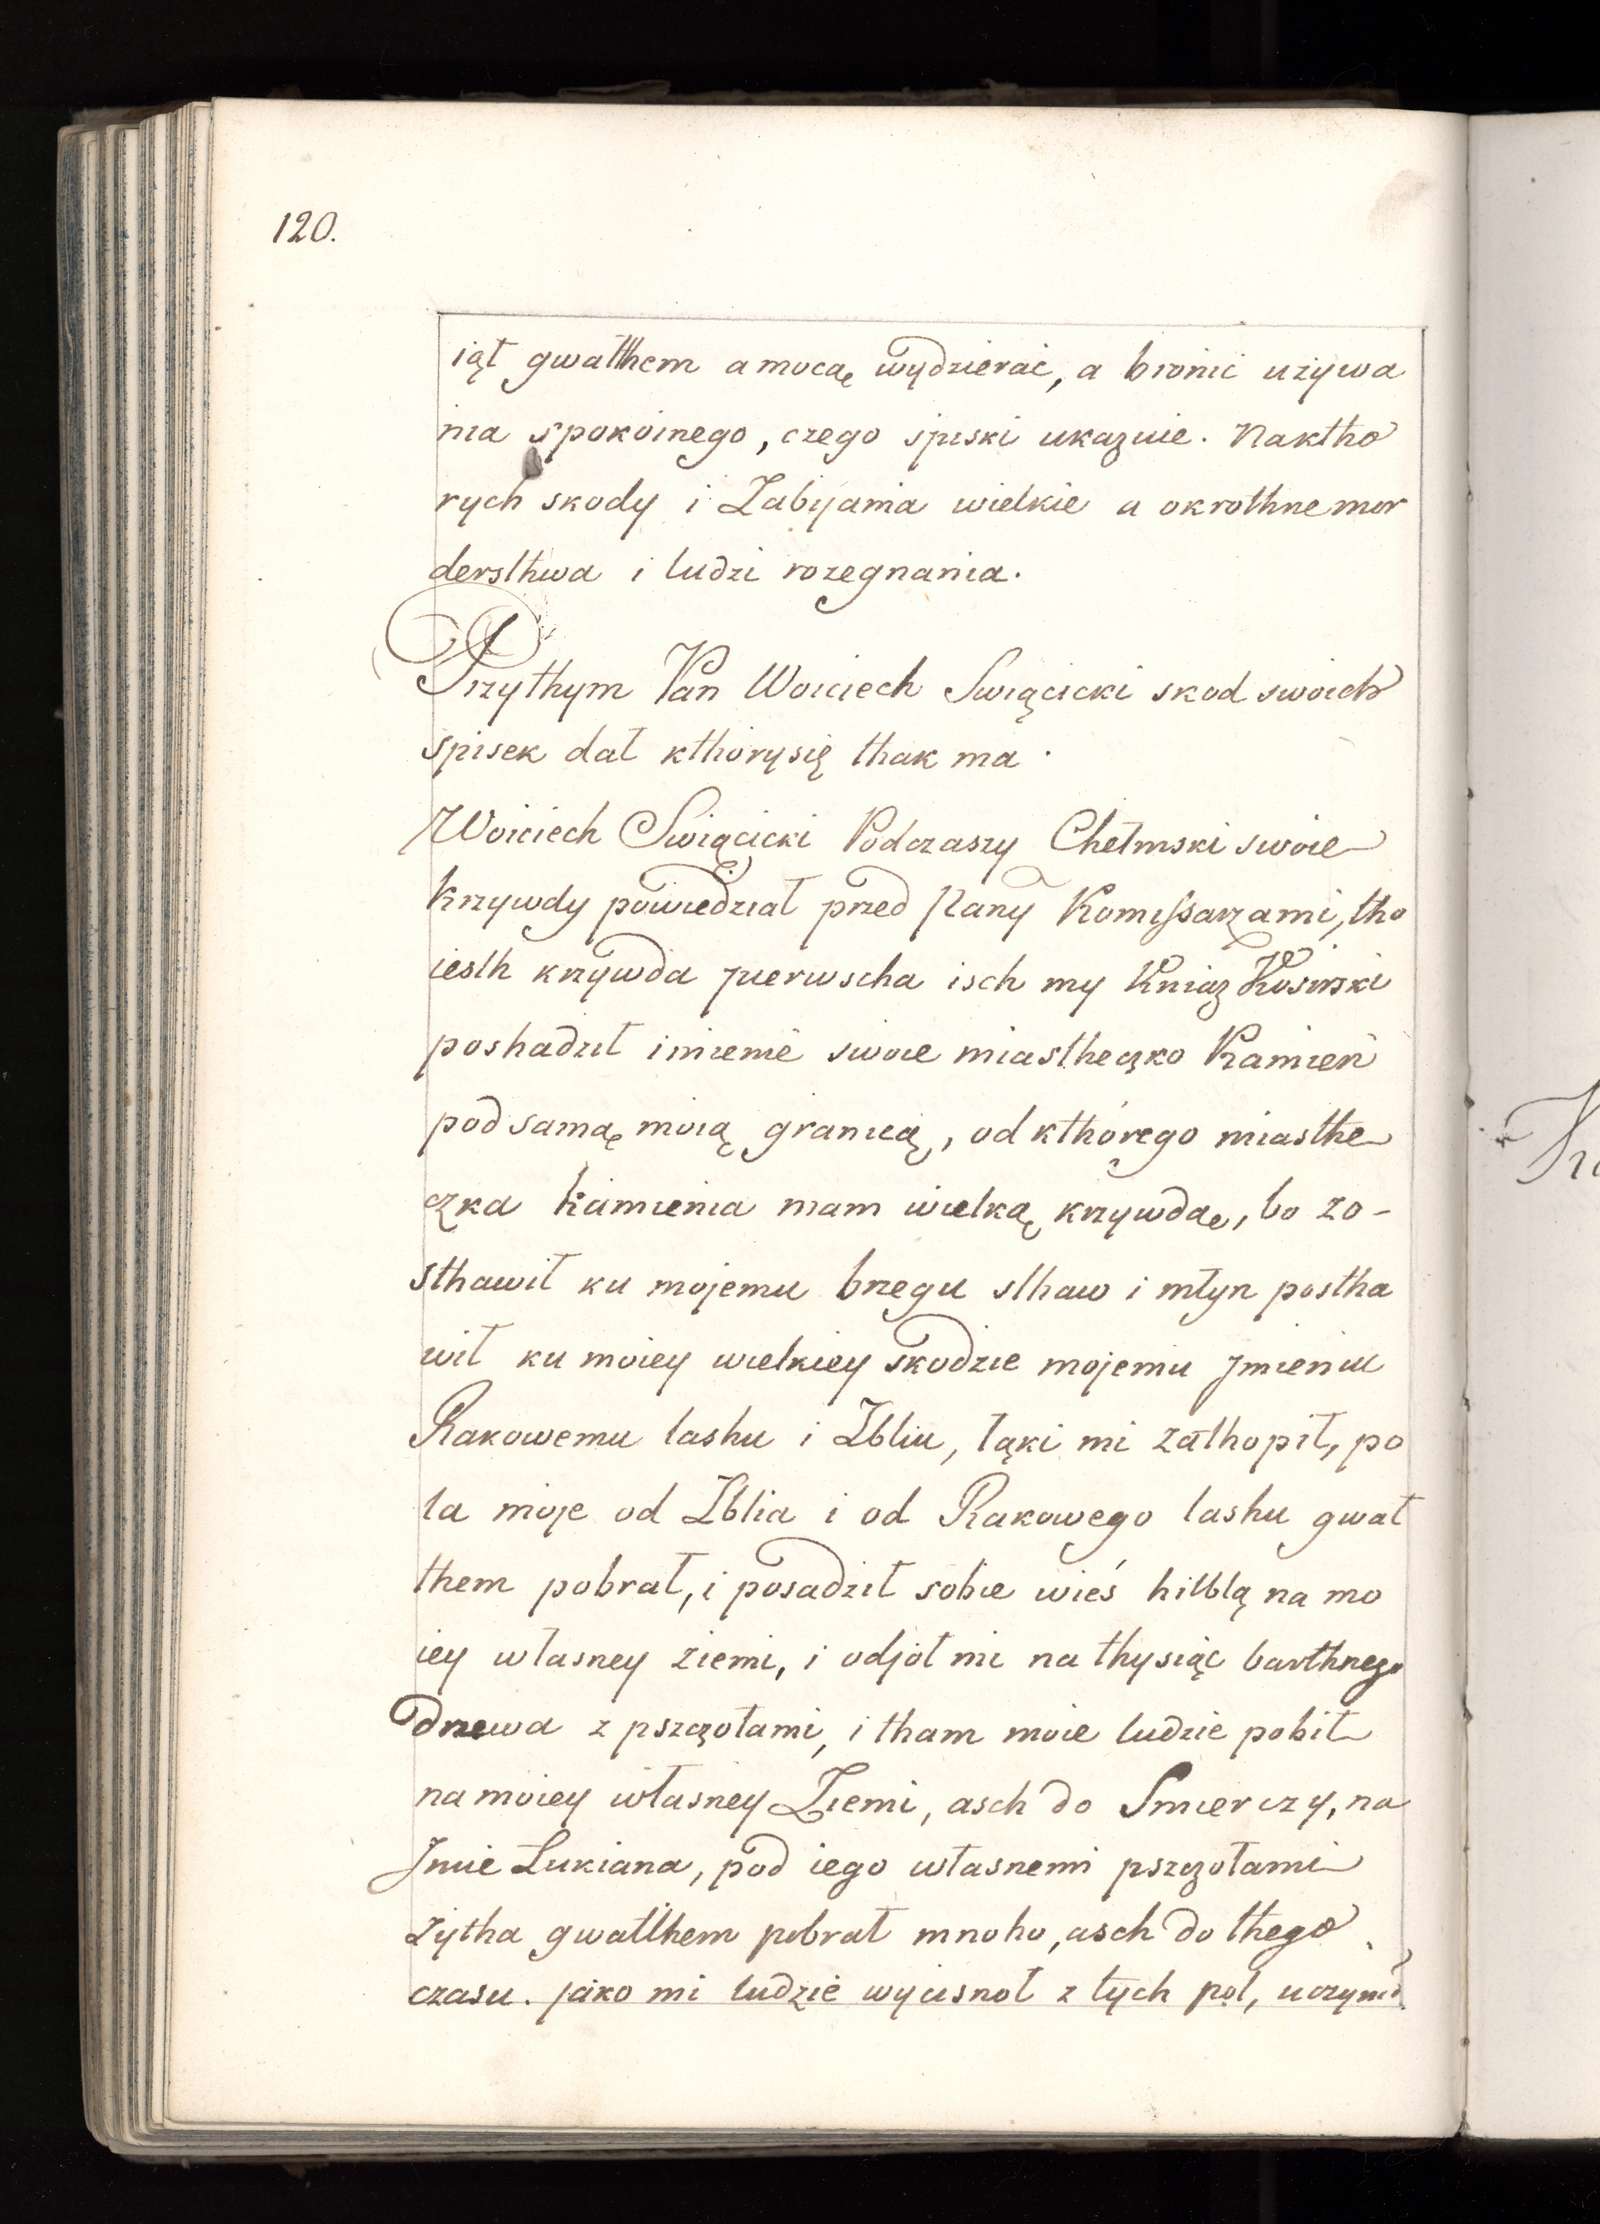 120.
iął gwałthem a mocaę wydzierać, a bronić używa
nia spokoinego, czego spiski ukazuie. Naktho
rych skody i Zabijania wielkie a okrothne mor
dersthwa i ludzi rozegnania.
Przythym Pan Woiciech Swiącicki skod swoich
spisek dał kthorysię thak ma.
Woiciech Swiącicki Podczaszy Chełmski swoie
krzywdy powiedział przed Pany Komissarzami, tho
iesth krzywda pierwscha isch my Kniaz Kosirski
poshadził imienie swoie miastheczko Kamień
pod samaę moią granicą, od kthórego miasthe
czka Kamienia mam wielkaę krzywdaę, bo zo-
sthawił ku mojemu brzegu sthaw i młyn postha
wił ku moiey wielkiey skodzie mojemu Jmieniu
Rakowemu lashu i Zbliu, łąki mi zathopił, po
la moje od Zblia i od Rakowego lashu gwał
them pobrał, i posadził sobie wieś hilblą na mo
iey własney ziemi, i odjoł mi na thysiąc barthnego
drzewa z pszczołami, i tham moie ludzie pobił
na moiey własney Ziemi, asch do Smierczy, na
Jmie Lukiana, pod iego własnemi pszczołami
żytha gwałthem pobrał mnoho, asch do thego
czasu. jako mi ludzie wycisnoł z tych pol,